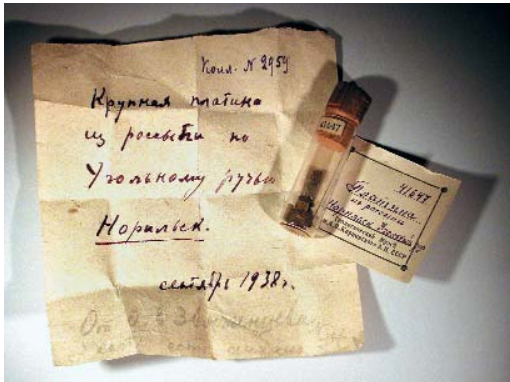 Колл. N 2959
Крупная платина
из россыпи по
Угольному ручью
Норильск.
сентябрь 1938 г.
От
41647
41647
Платина
из россыпи
Норильск